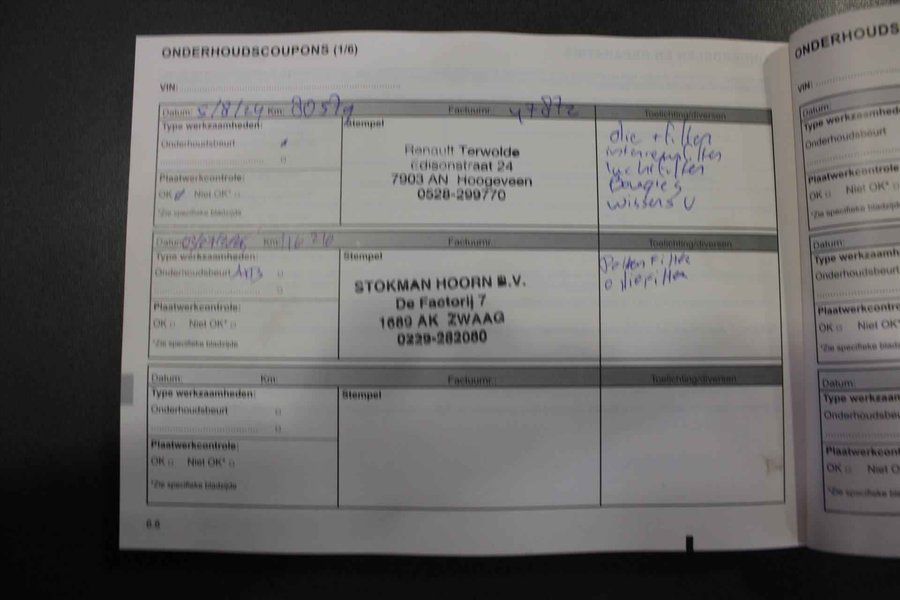 ONDERHOUDSCOUPONS (1/6)
VIN:
Datum: 5/8/14 Km: 80579 Factuurnr.: 47872 Toelichting/diversen
Type werkzaamheden:
Onderhoudsbeurt
Plaatwerkcontrole:
OK Niet OK*
*Zie specifieke bladzijde
Stempel
Renault Terwolde
Edisonstraat 24
7903 AN Hoogeveen
0528-299770
olie + filter
interieurfilter
luchtfilter
Bougies
wissers V
Datum: Km: Factuurnr.: Toelichting/diversen
Type werkzaamheden:
Onderhoudsbeurt
Plaatwerkcontrole:
OK Niet OK*
*Zie specifieke bladzijde
Stempel
STOKMAN HOORN B.V.
De Factorij 7
1689 AK ZWAAG
0229-282080
Pollen Filter
oliefilter
Datum: Km: Factuurnr.: Toelichting/diversen
Type werkzaamheden:
Onderhoudsbeurt
Plaatwerkcontrole:
OK Niet OK*
*Zie specifieke bladzijde
Stempel
6.9
ONDERHOUDS
VIN:
Datum:
Type werkzaam
Onderhoudsbeurt
Plaatwerkcontrole
OK Niet OK*
*Zie specifieke bladzijde
Datum:
Type werkzaam
Onderhoudsbeu
Plaatwerkcontro
OK Niet OK
*Zie specifieke blad
Datum:
Type werkzaam
Onderhoudsbeu
Plaatwerkcont
OK Niet O
*Zie specifieke bla